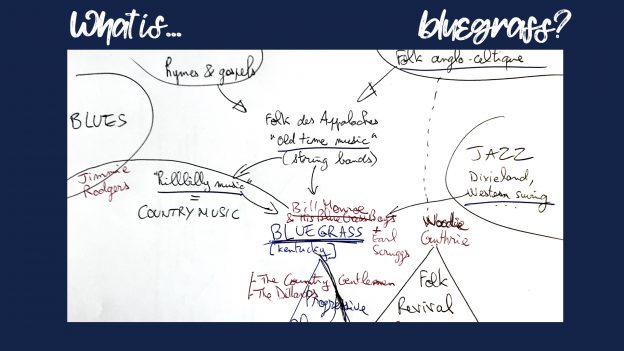 What is...
bluegrass?
hymes & gospels
Folk anglo-celtique
BLUES
Folk des Appalaches
"Old time music"
(string bands)
JAZZ
Dixieland,
Western swing
Jimmie
Rodgers
"hillbilly music"
=
COUNTRY MUSIC
Bill Monroe
& His Blue Grass Boys
BLUEGRASS
[Kentucky]
+
Earl
Scruggs
Woodie
Guthrie
- The Country Gentlemen
- The Dillards
Progressive
Folk
Revival